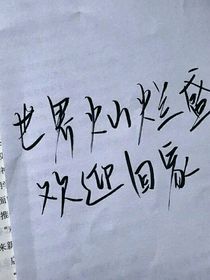 世界灿烂盛
欢迎回家